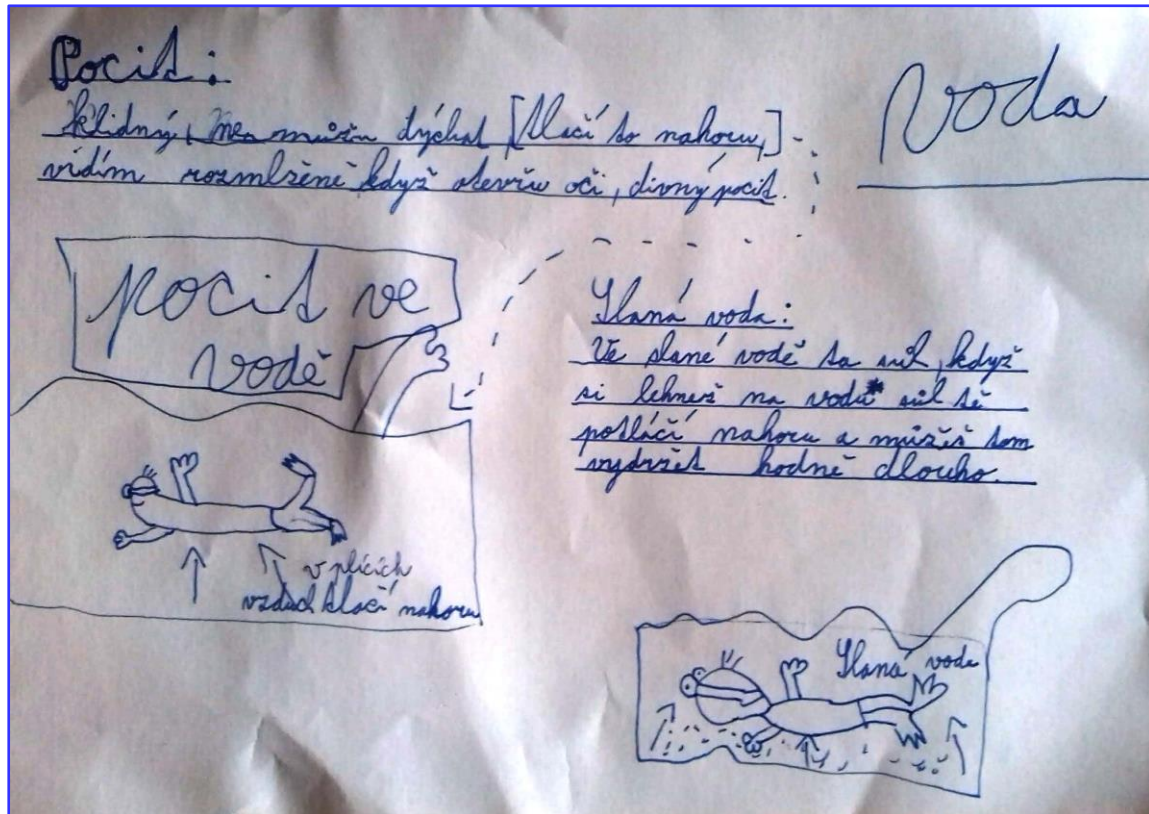 Pocit:
klidný, nemůžu dýchat, [tlačí to nahoru,]
vidím rozmlženě když otevřu oči, divný pocit.
Voda
pocit ve
vodě
v plících
vzduch tlačí nahoru
Slaná voda:
Ve slané vodě ta sůl, když
si lehneš na vodu sůl tě
potlačí nahoru a můžeš tam
vydržet hodně dlouho.
Slaná voda